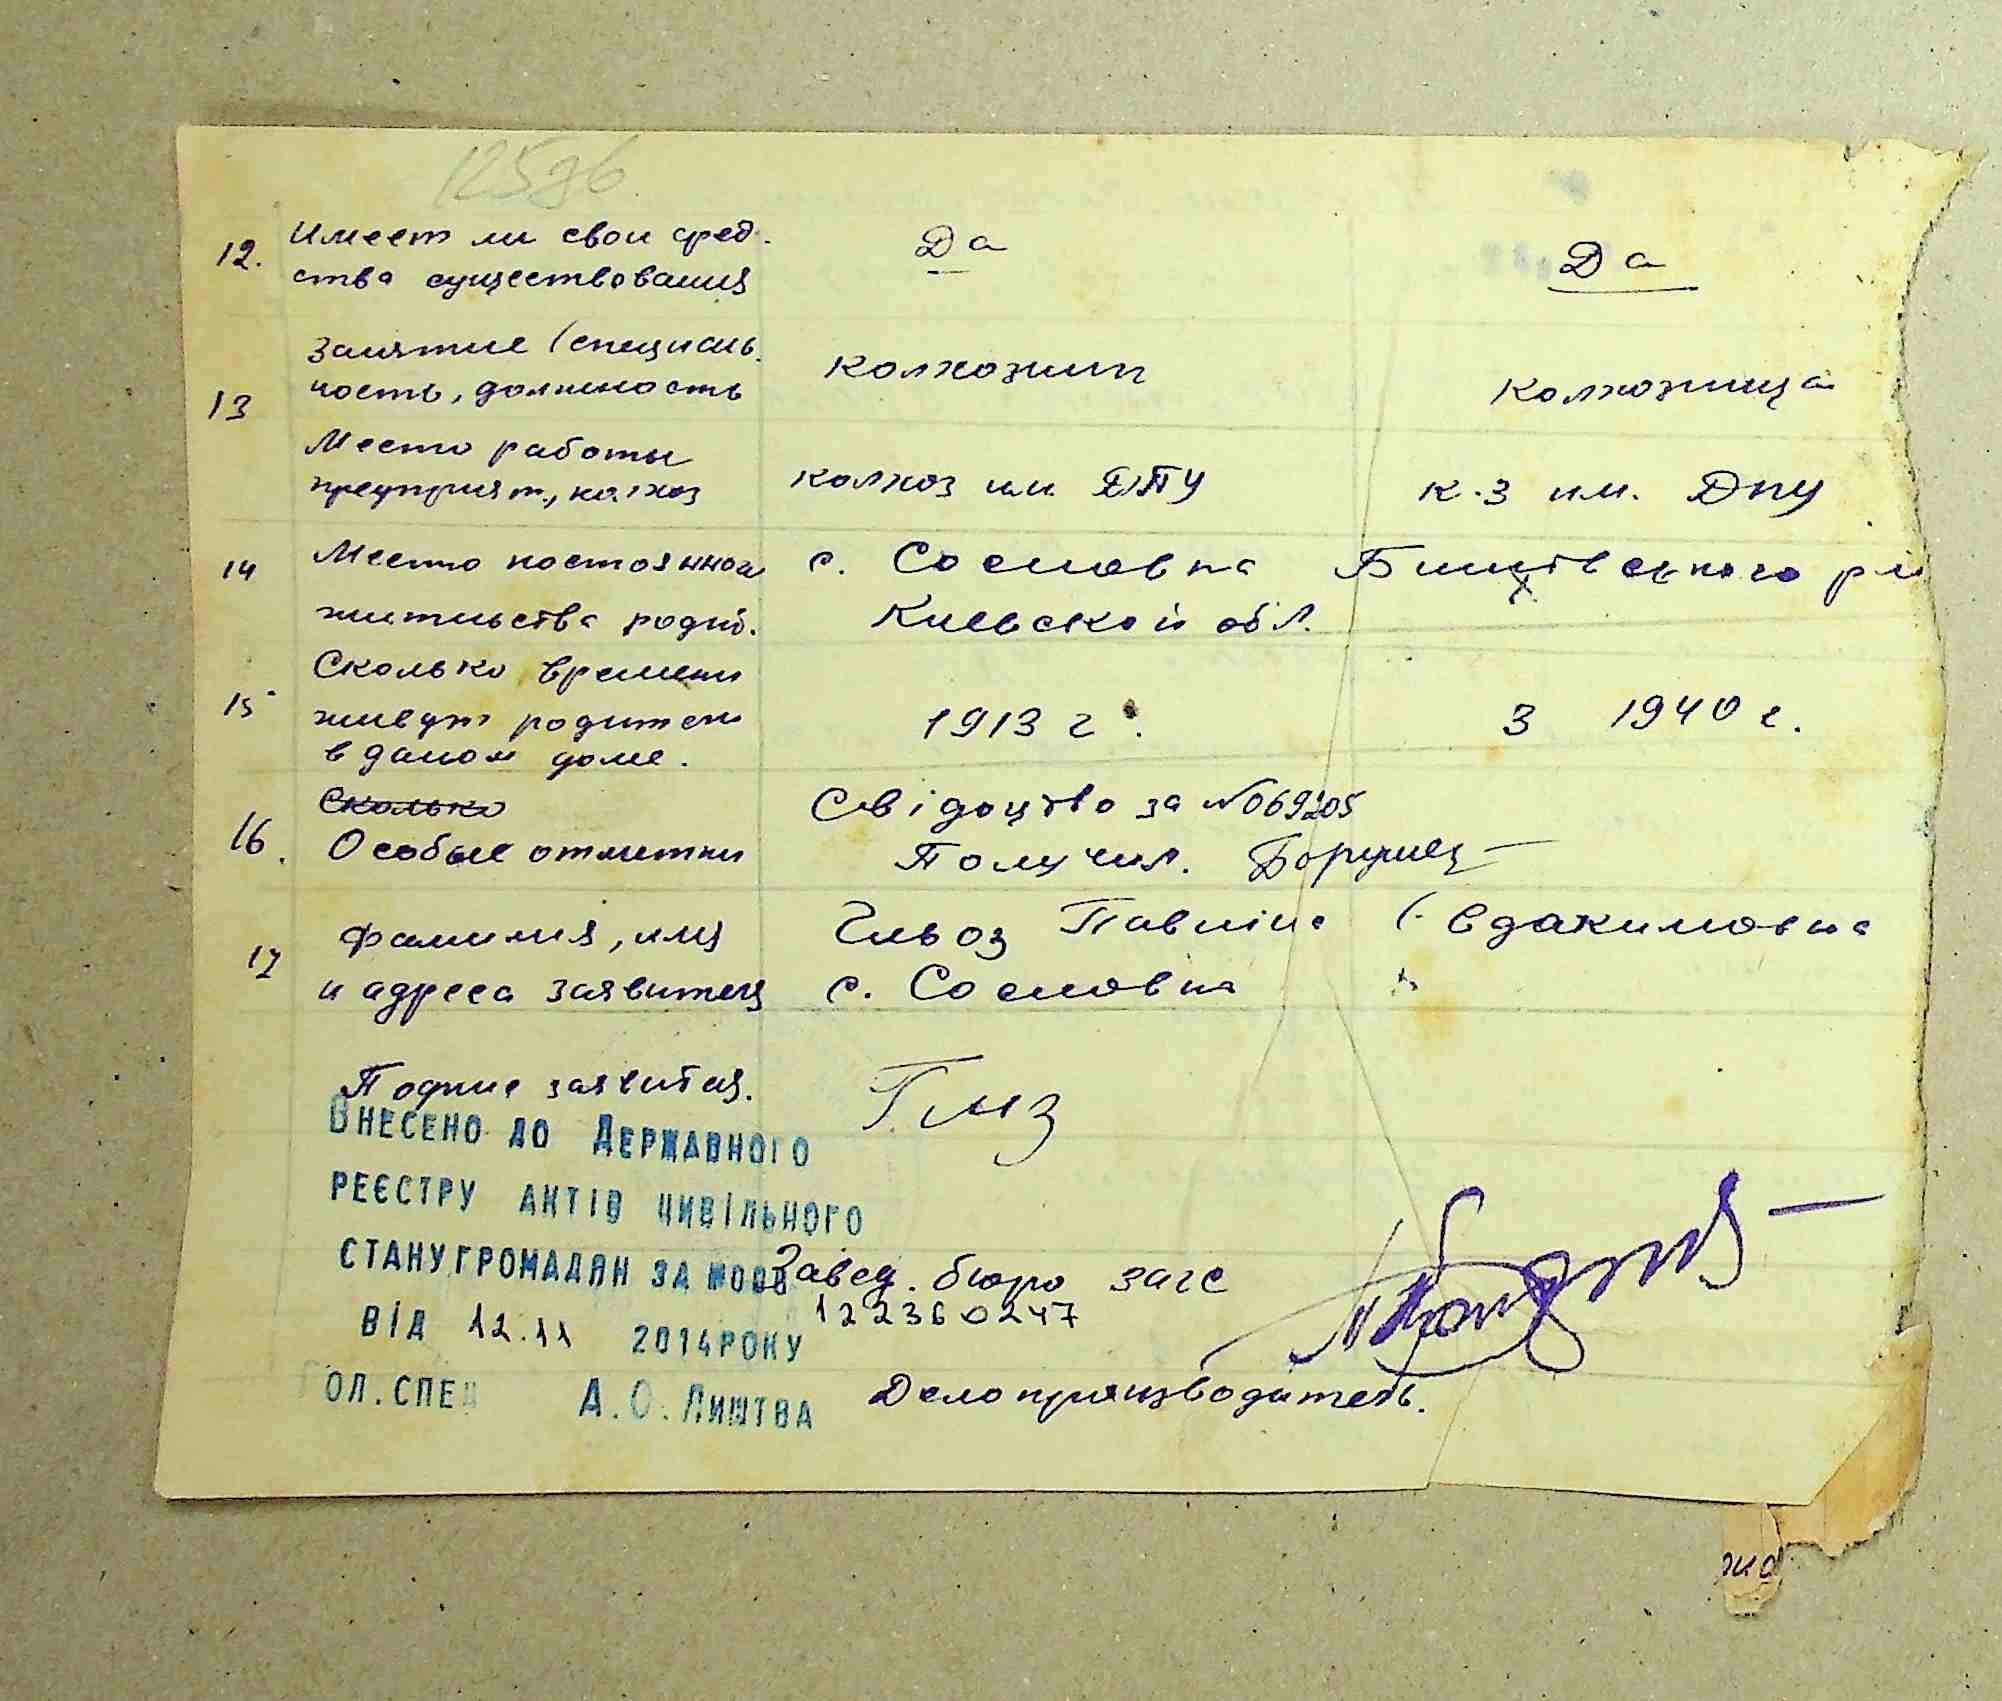 125зв
12. Имеет ли свои сред. Да Да
ства существования
Занятие (специаль.
13 ность, должность колхозник колхозница
Место работы
предприят., колхоз колхоз им. ДПУ к-з им. ДПУ
14 Место постоянного с. Сосновка Бишівського р-н
жительства родит. Киевской обл.
Сколько времени
15 живут родители 1913 г. З 1940 г.
в даном доме.
Сколько Свідоцтво за №069205
16. Особые отметки Получил.
17 Фамилия, имя Павліна Євдакимовна
и адреса заявителя с. Сосновка
Подпис заявителя.
Внесено до Державного
реєстру актів цивільного
стану громадян за №000
Завед. бюро загс
від 12.11 2014 року 12236 0247
Гол. спец А.О. Лиштва Делопроизводитель.
жо